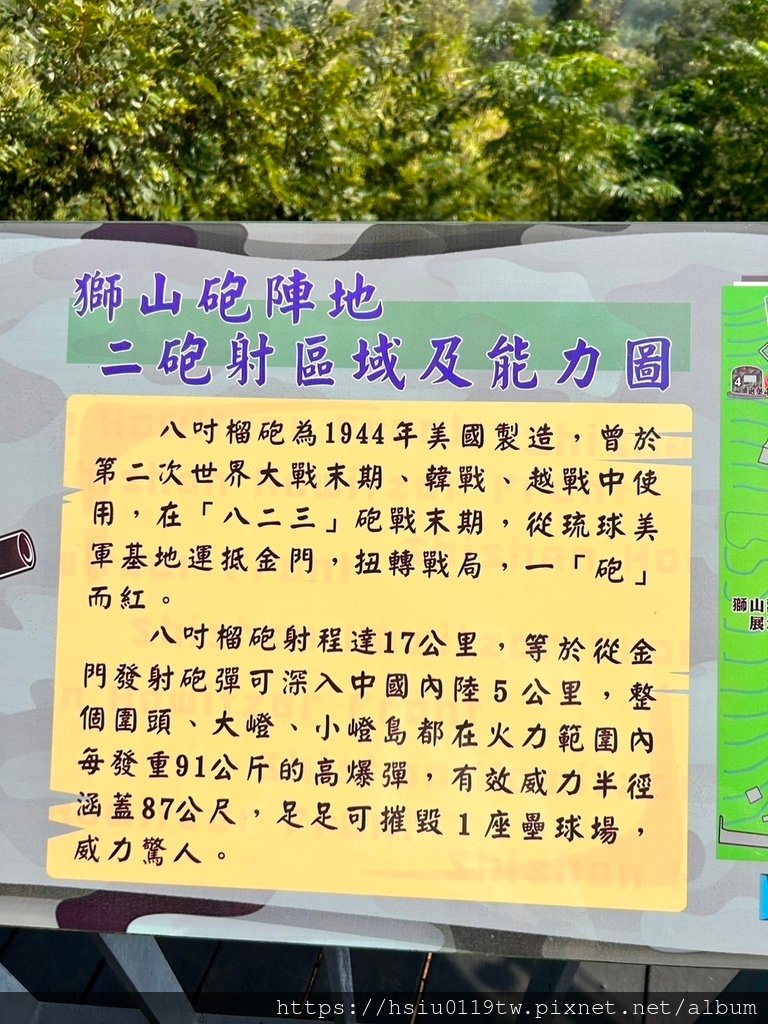 獅山砲陣地
二砲射區域及能力圖
八吋榴砲為1944年美國製造，曾於
第二次世界大戰末期、韓戰、越戰中使
用，在「八二三」砲戰末期，從琉球美
軍基地運抵金門，扭轉戰局，一「砲」
而紅。
八吋榴砲射程達17公里，等於從金
門發射砲彈可深入中國內陸5公里，整
個圍頭、大嶝、小嶝島都在火力範圍內
每發重91公斤的高爆彈，有效威力半徑
涵蓋87公尺，足足可摧毀1座壘球場，
威力驚人。
4
獅山
https://hsiu0119tw.pixnet.net/album